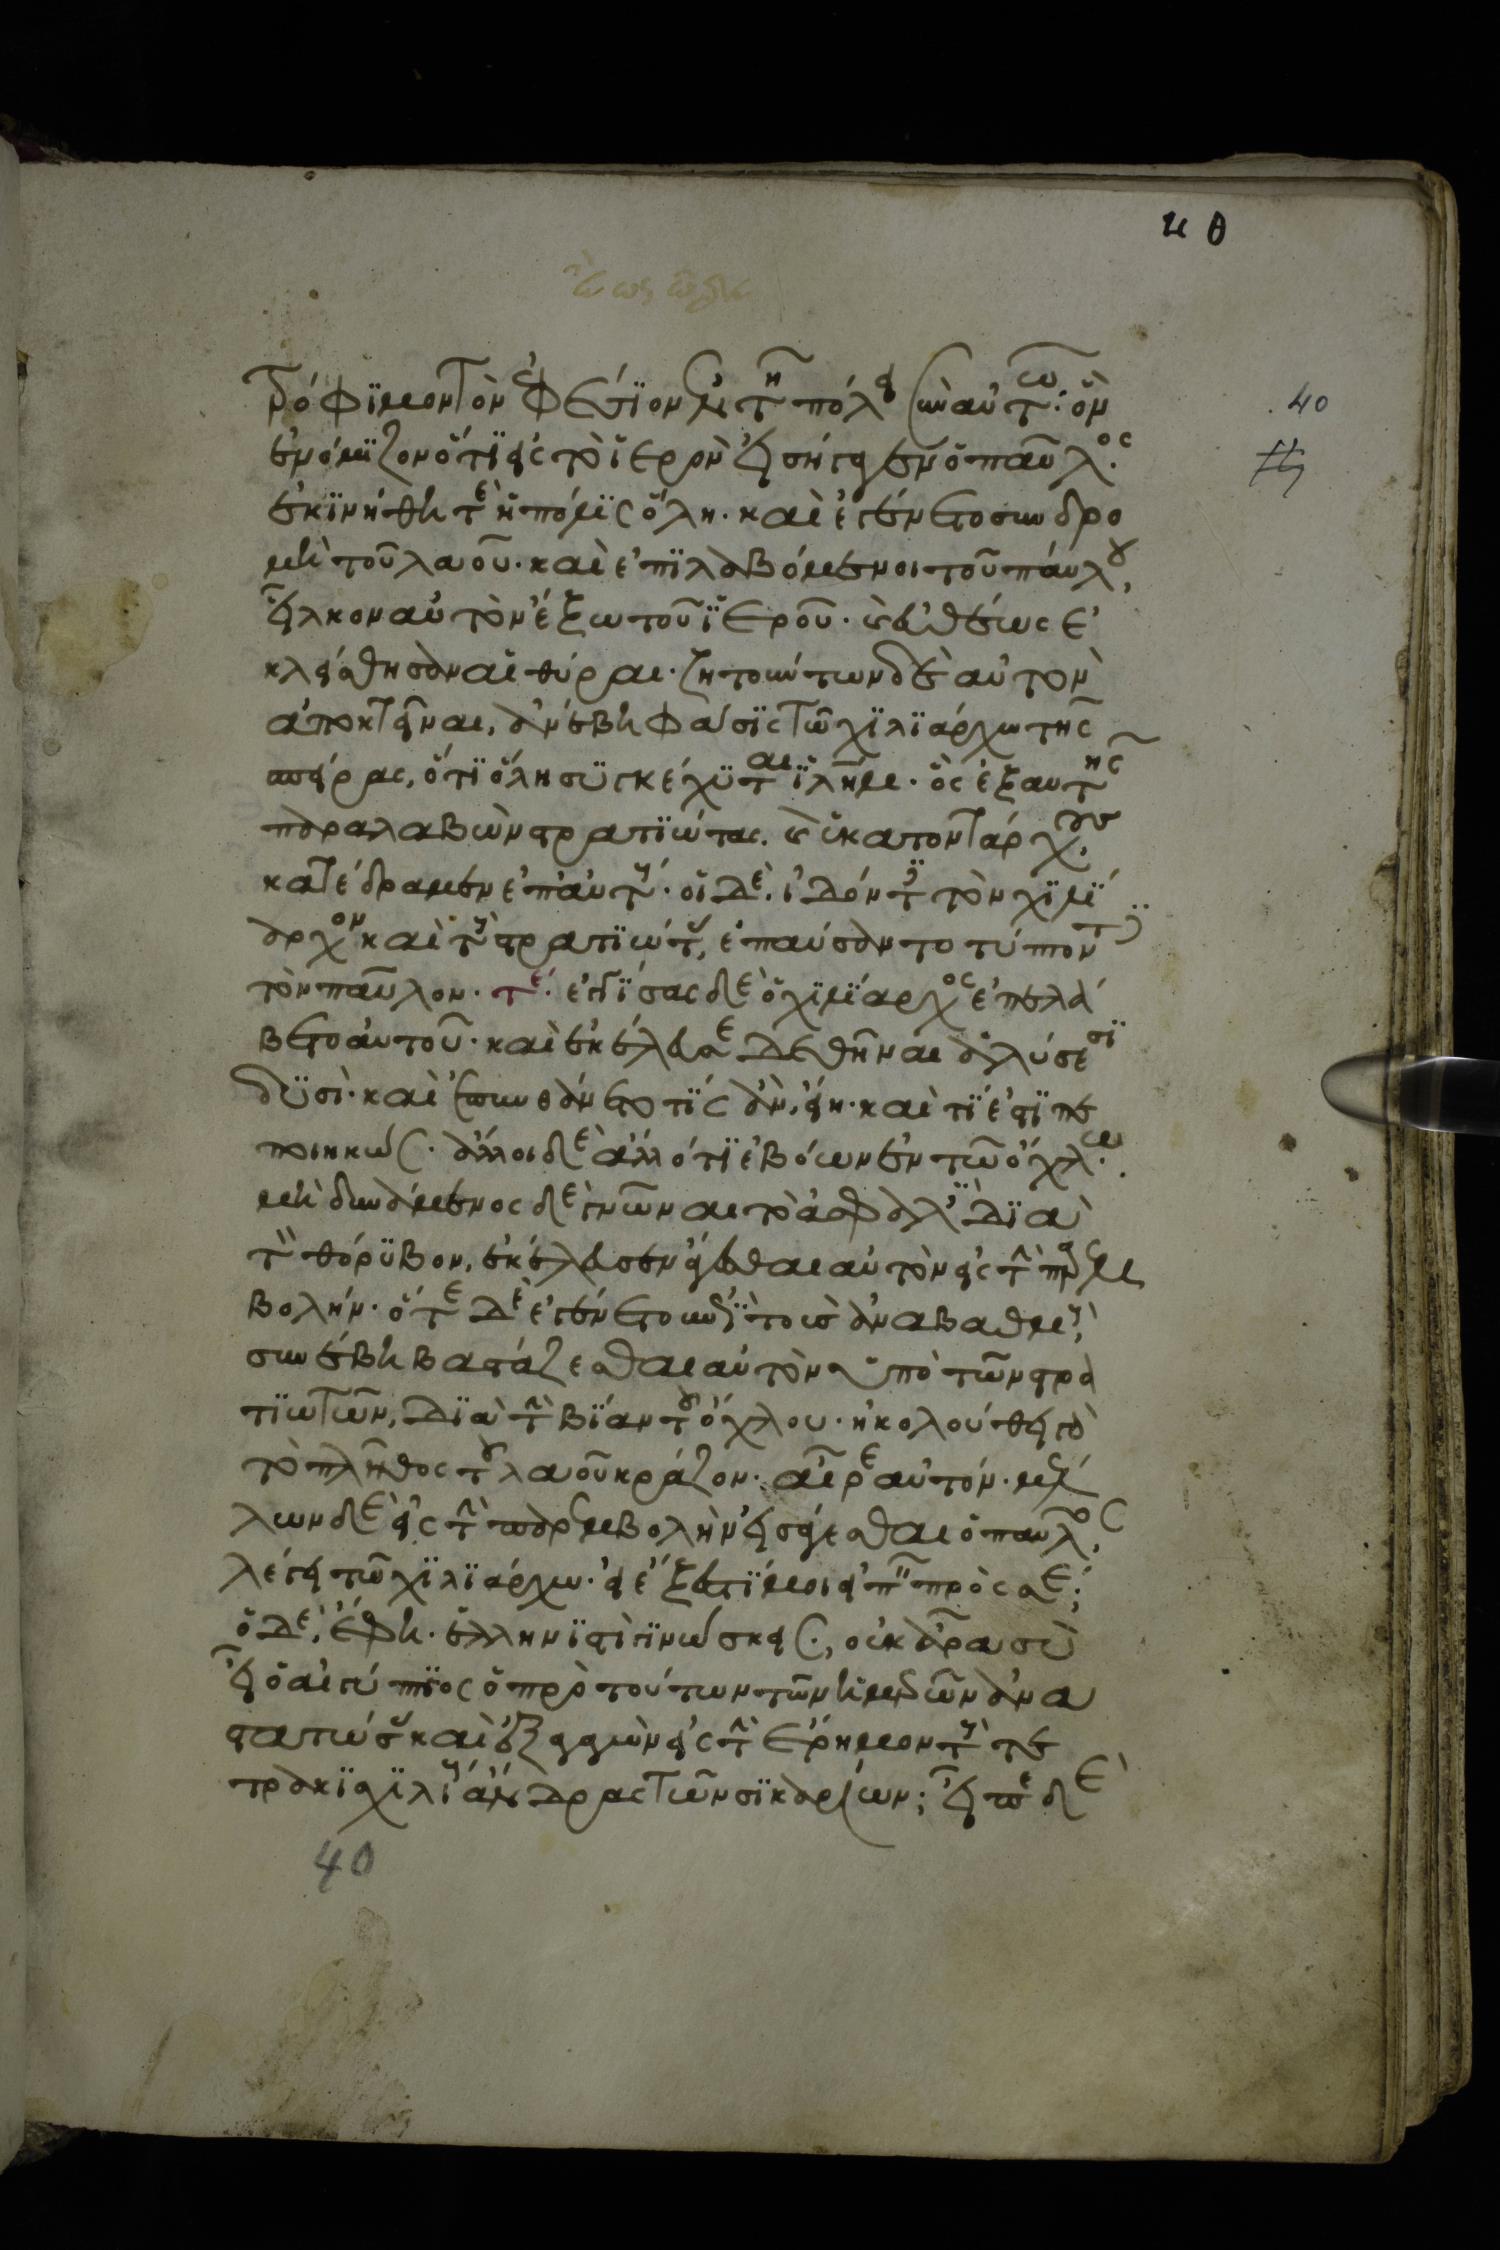 κθ
τρόφιμον τὸν ἐφέσιον ἐν τῆ πόλει σὺν αὐτῶ· ὃν
ἐνόμιζον ὅτι εἰς τὸ ἱερὸν εἰσήγαγεν ὁ παῦλος·
40
ἐκινήθη τὲ ἡ πόλις ὅλη· καὶ ἐγένετο συνδρο
μὴ τοῦ λαοῦ· καὶ ἐπιλαβόμενοι τοῦ παύλου,
εἷλκον αὐτὸν ἔξω τοῦ ἱεροῦ· καὶ εὐθέως ἐ
κλείσθησαν αἱ θύραι· ζητούντων δὲ αὐτὸν
ἀποκτεῖναι, ἀνέβη φάσις τῶ χιλιάρχω τῆς
σπείρας, ὅτι ὅλη συγκέχυται ἱλημ· ὃς ἐξαυτῆς
παραλαβὼν στρατιώτας καὶ ἑκατοντάρχους
κατέδραμεν ἐπ' αὐτούς· οἱ δὲ ἰδόντες τὸν χιλί
αρχον καὶ τοὺς στρατιώτας, ἐπαύσαντο τύπτοντες
τὸν παῦλον· τέ· ἐγγίσας δὲ ὁ χιλίαρχος ἐπελά
βετο αὐτοῦ· καὶ ἐκέλευσε δεθῆναι ἁλύσεσι
δυσί· καὶ ἐπυνθάνετο τίς ἂν εἴη· καὶ τί ἐστι πε
ποιηκώς· ἄλλοι δὲ ἄλλό τι ἐβόων ἐν τῶ ὄχλω·
μὴ δυνάμενος δὲ γνῶναι τὸ ἀσφαλὲς διὰ
τὸν θόρυβον, ἐκέλευσεν ἄγεσθαι αὐτὸν εἰς τὴν παρεμ
βολήν· ὅτε δὲ ἐγένετο ἐπὶ τοὺς ἀναβαθμούς,
συνέβη βαστάζεσθαι αὐτὸν ὑπὸ τῶν στρα
τιωτῶν, διὰ τὴν βίαν τοῦ ὄχλου· ἠκολούθει γὰρ
τὸ πλῆθος τοῦ λαοῦ κράζον· αἶρε αὐτόν· μέλ
λων δὲ εἰς τὴν παρεμβολὴν εἰσάγεσθαι ὁ παῦλος,
λέγει τῶ χιλιάρχω· εἰ ἔξεστί μοι εἰπεῖν πρὸς σέ;
ὁ δὲ, ἔφη· ἑλληνιστὶ γινώσκεις·, οὐκ ἄρα σὺ
εἶ ὁ αἰγύπτιος ὁ πρὸ τούτων τῶν ἡμερῶν ἀνα
στατώσας καὶ ἐξαγαγὼν εἰς τὴν ἔρημον τοὺς τε
τρακισχιλίους ἄνδρας τῶν σικαρίων; εἶπε δὲ
40